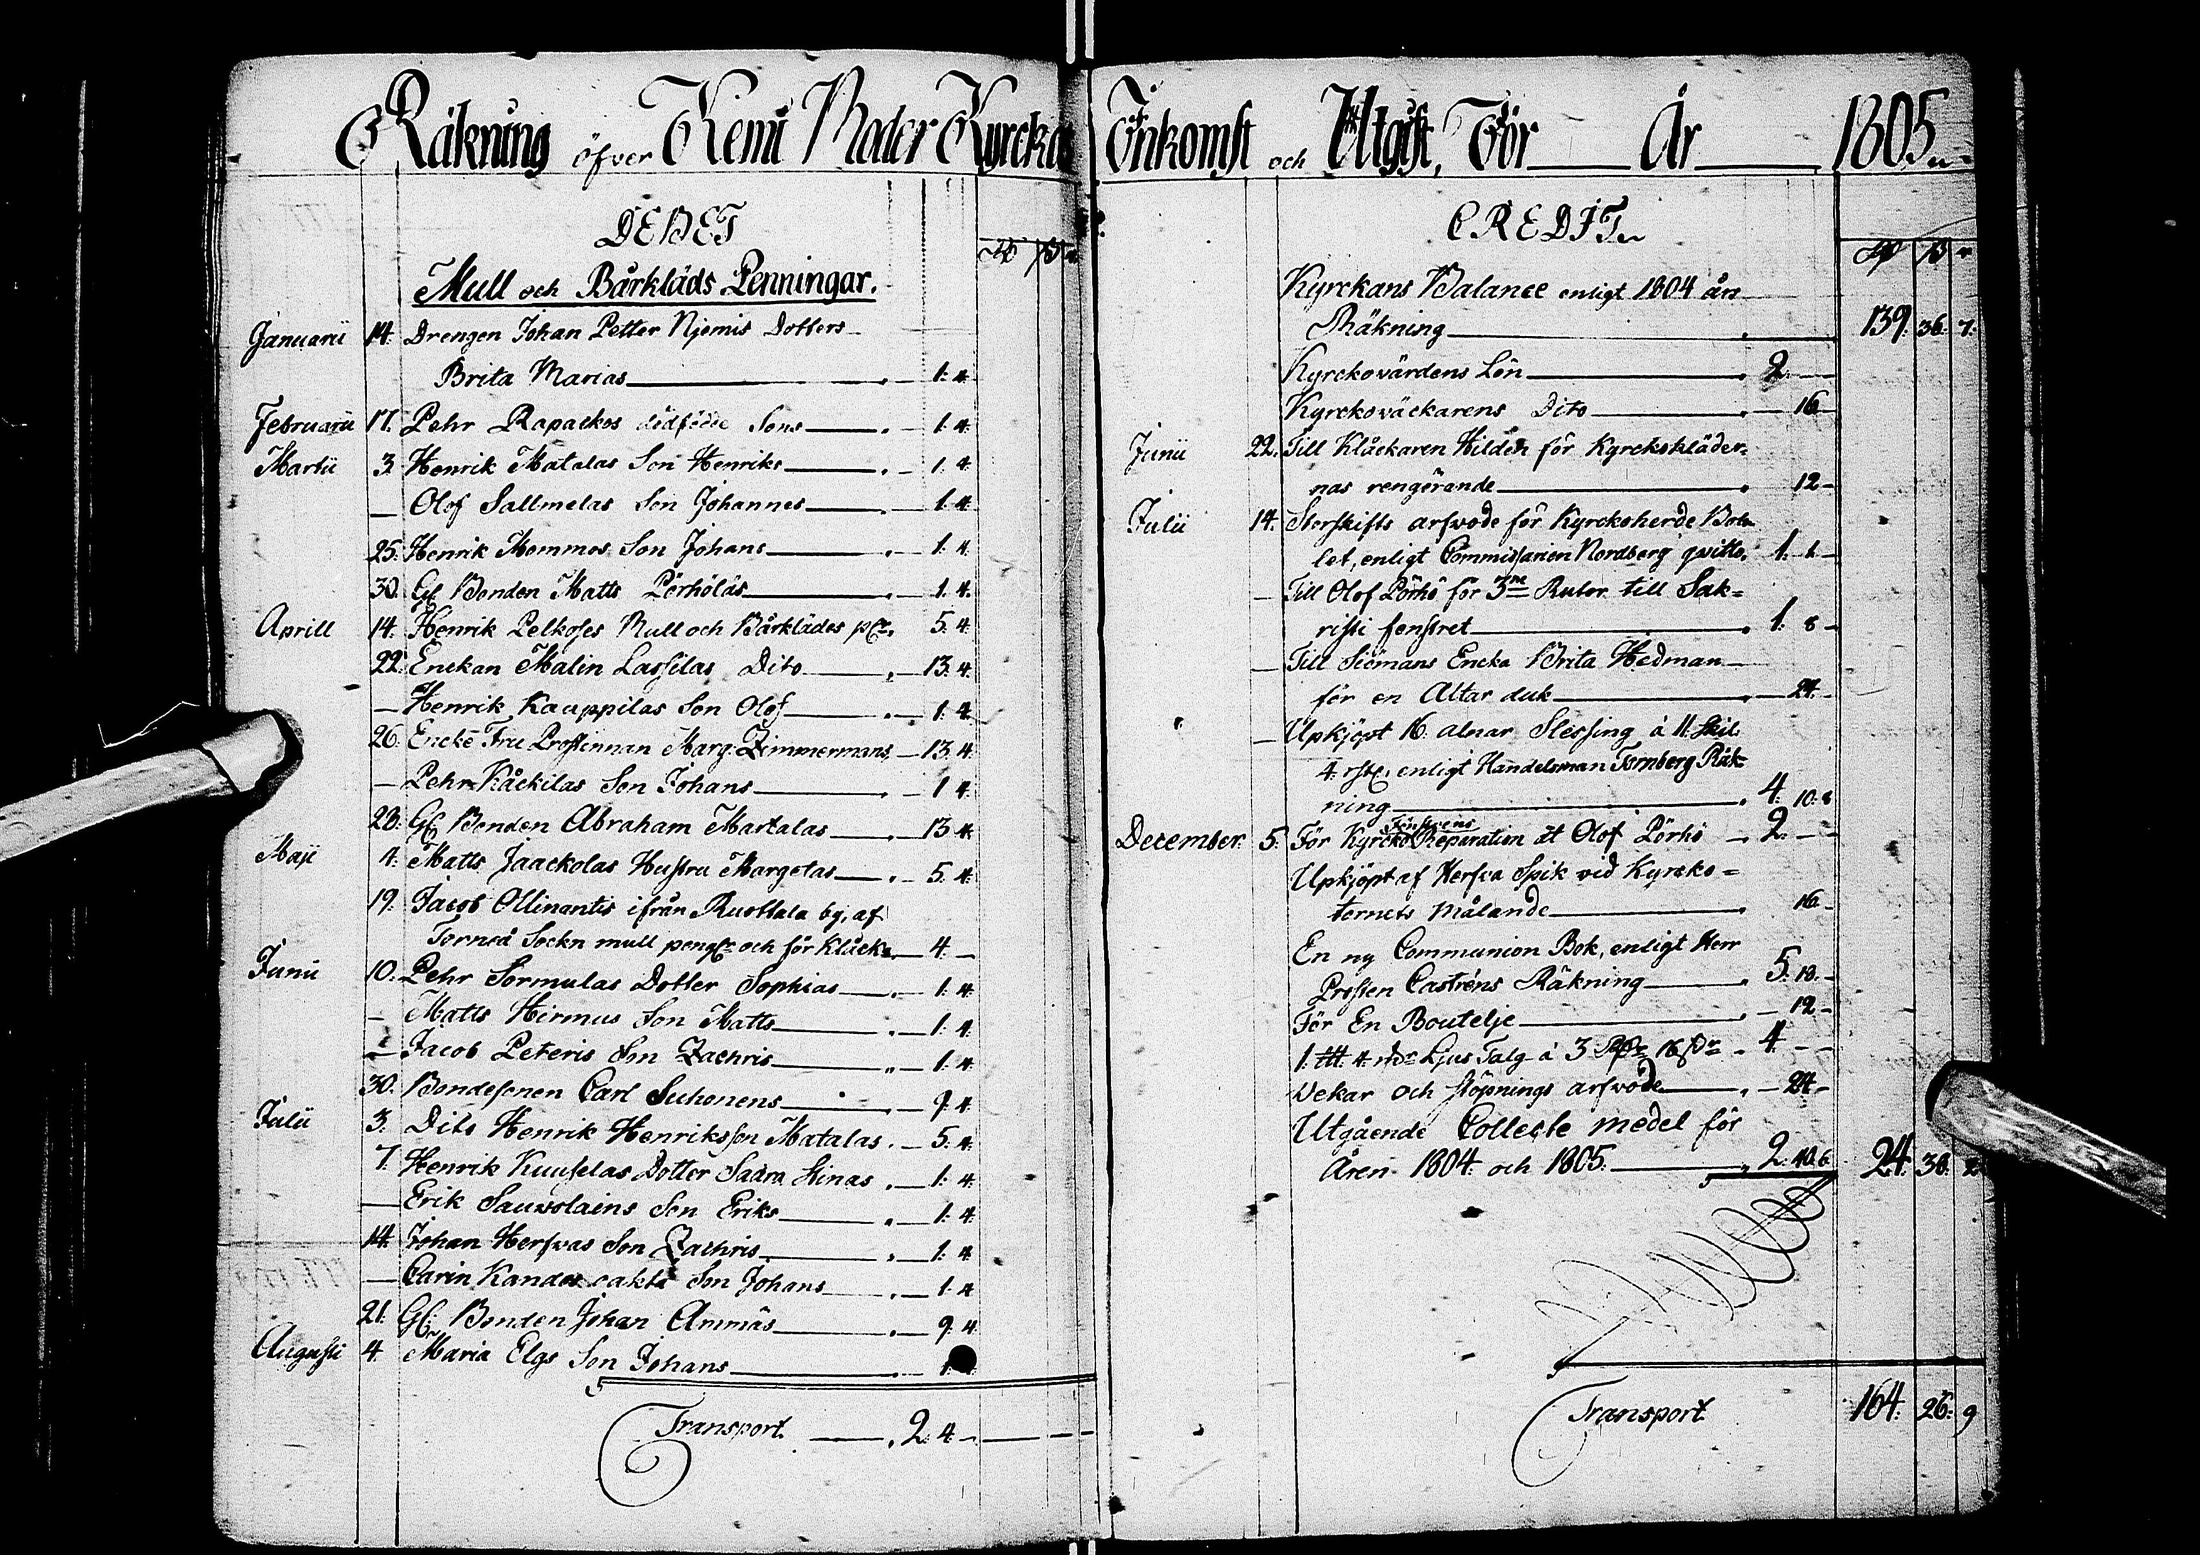 Räkning öfver Kemi Moder Kyrckas Inkomst och Utgift, För År 1805
DEBET
Mull och Bårkläds Penningar.
Januarii 14. Drengen Johan Petter Njemis Dotters
Brita Marias 1. 4.
Februarii 17. Pehr Rapackos dödfödde Sons 1. 4.
Martii 3. Henrik Matalas Son Henriks 1. 4
— Olof Sallmelas Son Johannes 1. 4
25. Henrik Mommos Son Johans 1. 4.
30. Gl. Bonden Matts Pörhöläs 1. 4.
Aprill 14. Henrik Pelkoses Mull och Bårklädes pgr. 5. 4.
22. Enckan Malin Lassilas Dito 13. 4.
— Henrik Kauppilas Son Olof 1. 4.
26. Encke Fru Prostinnan Marg: Zimmermans 13. 4.
— Pehr Kåckilas Son Johans 1. 4.
28. Gl. Bonden Abraham Martalas 13. 4.
Maji 1. Matts Jaackolas Hustru Margetas 5. 4.
19. Jacob Ollinantis ifrån Ruottala by, af
Torneå Sockn mull pengr och för Klåck. 4. —
Junii 10. Pehr Sormulas Dotter Sophias 1. 4.
— Matts Hirmus Son Matts 1. 4.
— Jacob Peteris Son Zachris 1. 4.
30. Bondesonen Carl Suhonens 9. 4.
Julii 3. Dito Henrik Henriksson Matalas. 5. 4.
7. Henrik Kuuselas Dotter Saara Stinas 1. 4.
— Erik Sauwolains Son Eriks 1. 4.
14. Johan Herfvas Son Zachris 1. 4.
— Carin Son Johans 1. 4
21. Gl. Bonden Johan Ammäs 9. 4
Augusti 4. Maria Elgs Son Johans 1.
Transport. 2. 4. —
CREDIT.
Kyrckans Balance enligt 1804 års
Räkning 139. 36. 7.
Kyrckovärdens Lön 2. —
Kyrckoväckarens Dito 16
Junii 22. Till Klåckaren Hildén för Kyrckokläder=
nas rengörande 12 —
Julii 14. Storskifts arfvode för Kyrckoherde Bob
let, enligt Commissarien Nordberg qvitto. 1. 1. —
— Till Olof Pörhö för 3ne Rutor till Sak=
risti fenstret 1. 8 —
— Till Siömans Encka Brita Hedman
för en Altar duk 24. —
— Upkjöpt 16. alnar Slessing à 11. skil.
4. rst. enligt Handelsman Tornberg Räk=
ning 4. 10. 8
December. 5. För Kyrcko Fönstrens Reparation åt Olof Pörhö 2. —
Upkjöpt af Herfva Spik vid Kyrcko=
tornets målande 16. —
En ny Communion Bok, enligt Herr
Prosten Castréns Räkning 5. 18. —
För En Boutelje 12 —
1. 4. Ljus Talg à 3 16 4. —
Vekar och stöpnings arfvode 24 —
Utgående Collecte medel för
Åren 1804. och 1805. 2. 40. 6. 24. 38. 2
Transport 164. 26. 9